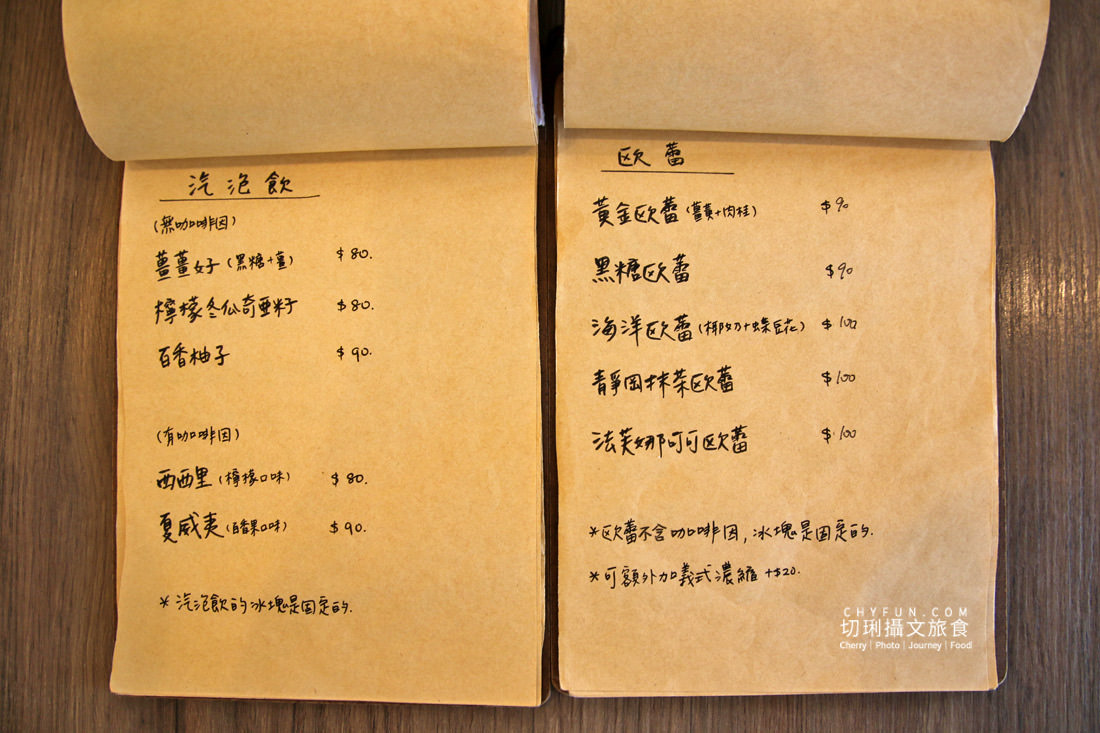 汽泡飲
(無咖啡因)
薑薑好(黑糖+薑) $80.
檸檬冬瓜奇亞籽 $80.
百香柚子 $90.
(有咖啡因)
西西里(檸檬口味) $80.
夏威夷(百香果口味) $90.
*汽泡飲的冰塊是固定的.
歐蕾
黃金歐蕾(薑黃+肉桂) $90
黑糖歐蕾 $90
海洋歐蕾(椰奶+蝶豆花) $100
靜岡抹茶歐蕾 $100
法芙娜可可歐蕾 $100
*歐蕾不含咖啡因,冰塊是固定的.
*可額外加義式濃縮 +$20.
CHYFUN.COM
切琍攝文旅食
Cherry | Photo | Journey | Food